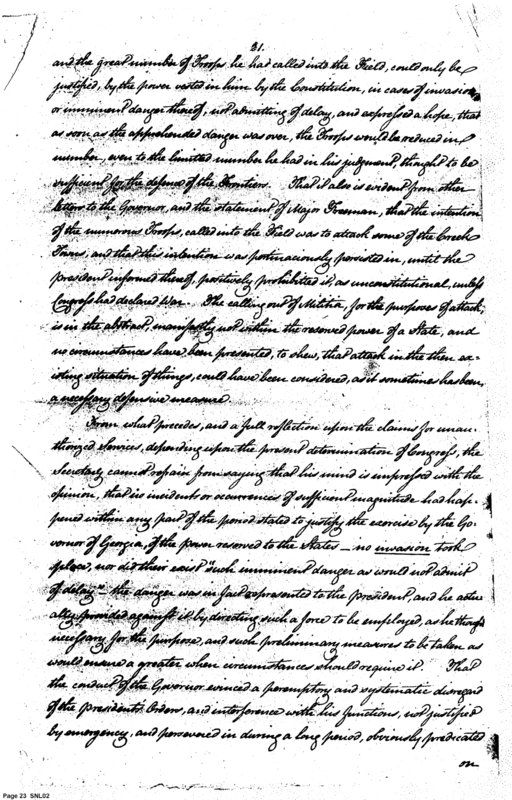 31.
and the great number of Troops he had called into the Field, could only be
justified, by the power vested in him by the Constitution, in cases of invasion
or imminent danger thereof, not admitting of delay, and expressed a hope, that
as soon as the apprehended danger was over, the Troops would be reduced in
number, even to the limited number he had in his judgment, thought to be
sufficient for the defence of the Frontiers. That it also is evident from other
letters to the Governor, and the statement of Major Freeman, that the intention
of the numerous Troops, called into the Field was to attack some of the Creek
Towns, and that this intention was pertinaciously persisted in, until the
President informed thereof, positively prohibited it, as unconstitutional, unless
Congress had declared War. The calling out of Militia, for the purposes of attack,
is in the abstract, manifestly not within the reserved power of a State, and
no circumstances have been presented, to shew, that attack in the then ex-
isting situation of things, could have been considered, as it sometimes has been,
a necessary defensive measure.
From what precedes, and a full reflection upon the claims for unau-
thorized services, depending upon the present determination of Congress, the
Secretary cannot refrain from saying that his mind is impressed with the
opinion, that no incidents or occurrences of sufficient magnitude had hap-
pened within any part of the period stated to justify the exercise by the Go-
vernor of Georgia, of the power reserved to the States — no invasion took
place, nor did there exist "such imminent danger as would not admit
of delay" — the danger was in fact represented to the President, and he actu-
ally provided against it by directing such a force to be employed, as he thought
necessary for the purpose, and such preliminary measures to be taken as
would ensure a greater when circumstances should require it. That
the conduct of the Governor evinced a peremptory and systematic disregard
of the Presidents Orders, and interference with his functions, not justified
by emergency, and persevered in during a long period, obviously predicated
on
Page 23 SNL02